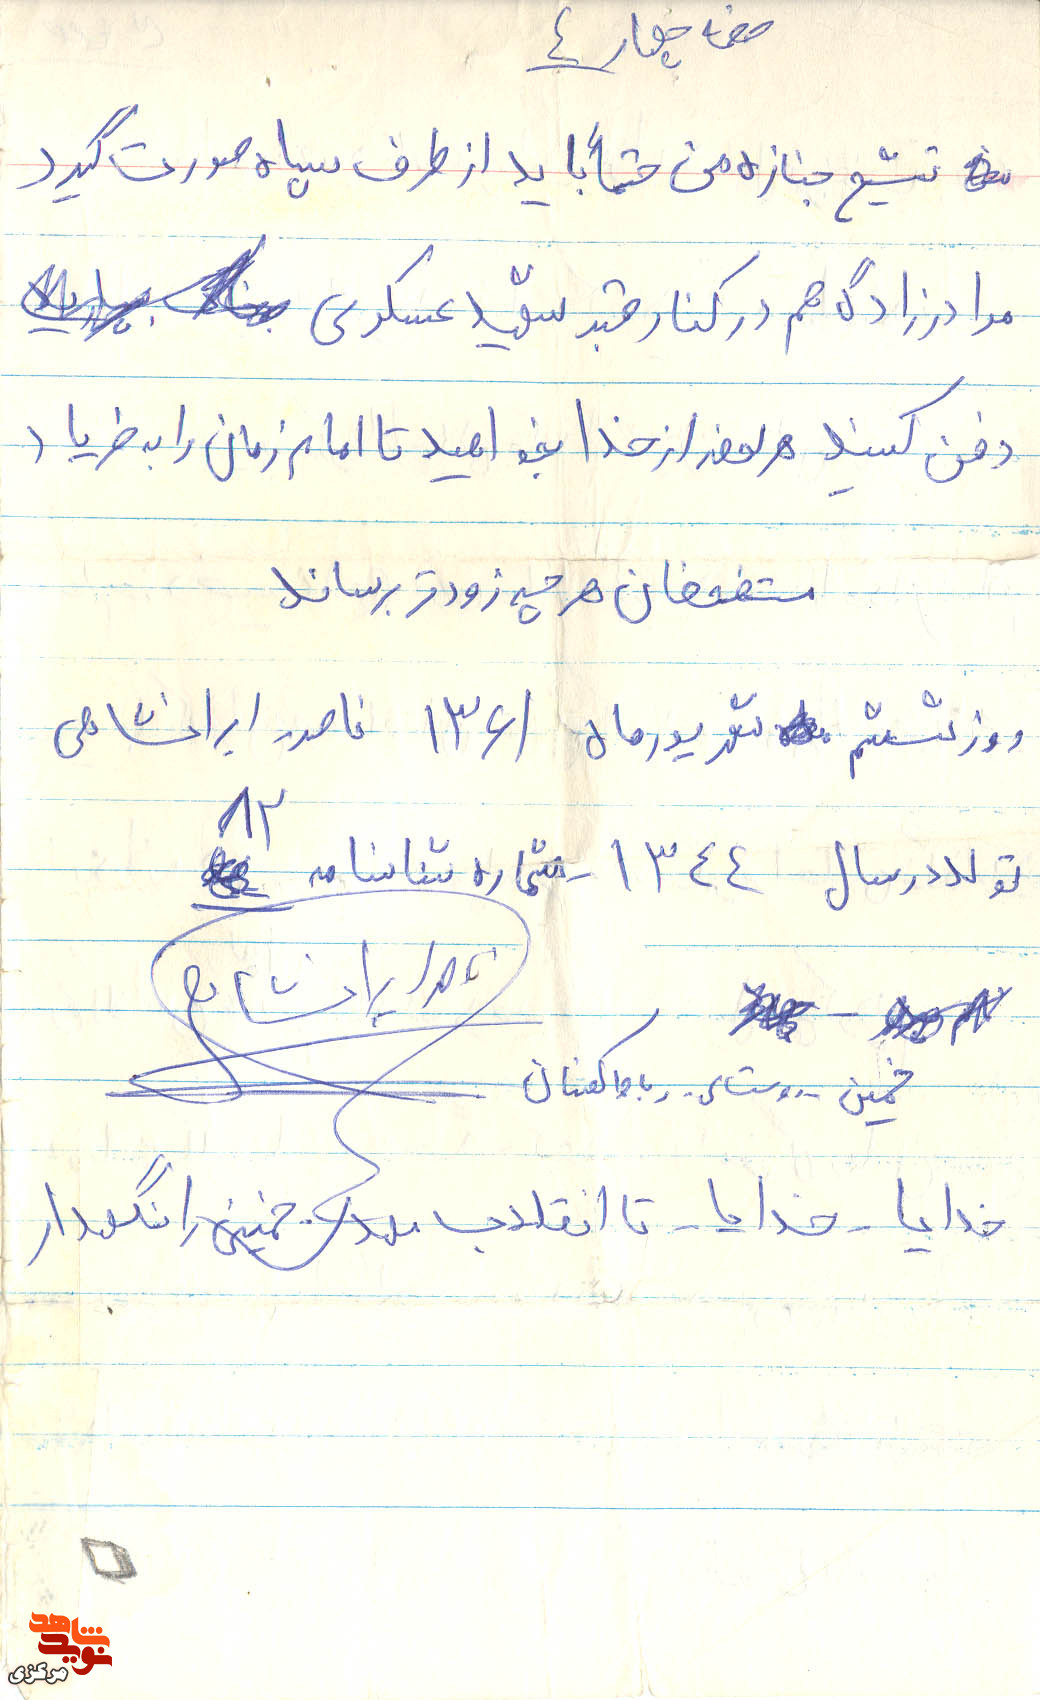 صفحه چهار ٤
تشیع جنازه من حتماً باید از طرف سپاه صورت گیرد
مرا در زادگاهم در کنار قبر شهید عسکری
دفن کنید هر لحظه از خدا بخواهید تا امام زمان را به فریاد
مستضعفان هر چه زودتر برساند
روز ششم شهریور ماه ۱۳۶۱ ناصر ایرانشاهی
تولد در سال ۱۳٤٤ - شماره شناسنامه ۸۲
ناصر ایرانشاهی
خمین - روستای رباط کفسان
خدایا - خدایا - تا انقلاب مهدی خمینی را نگهدار
شاهد
نوید
مرکزی